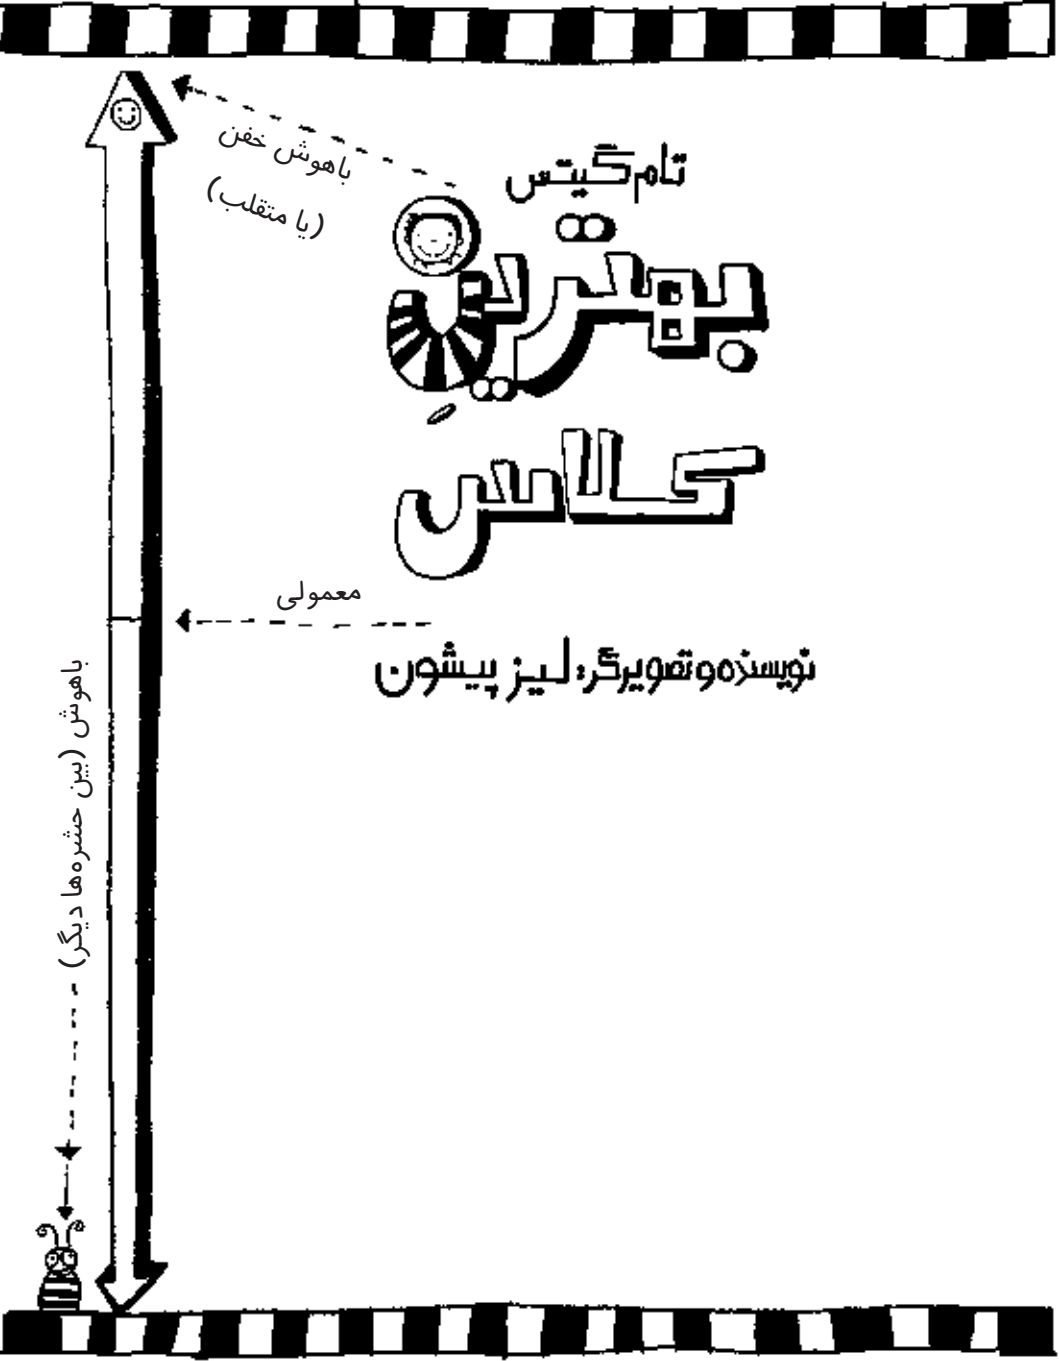 باهوش خفن
(یا متقلب)
تام گیتس
بهترینِ
کلاس
معمولی
نویسنده و تصویرگر: لیز پیشون
باهوش (بین حشره‌ها دیگر)